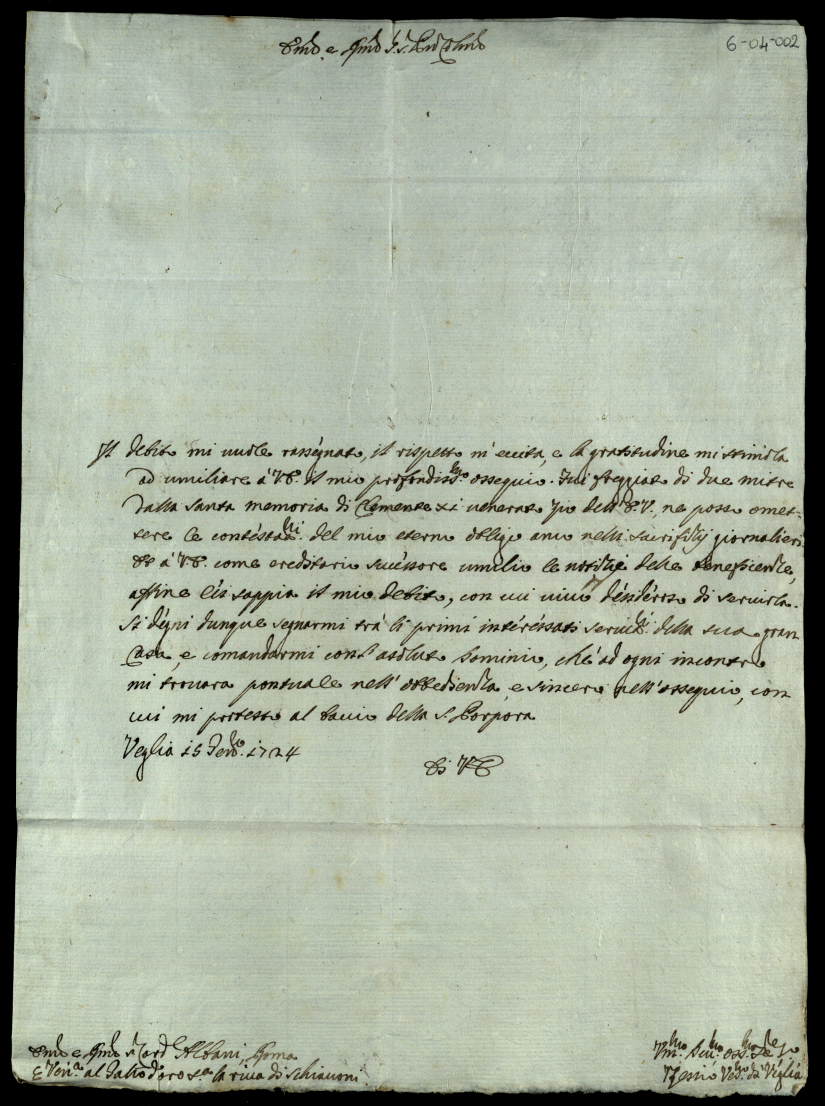 6-04-002
Em̃o e Rm̃o Sig.r Pr̃on Col̃mo
Il debito mi vuole rassegnato, il rispetto m'eccita, e la gratitudine mi stimola
ad umiliare á V.E. il mio profondiss.mo ossequio. Fui freggiato di due mitre
dalla santa memoria di Clemente XI venerato Zio dell'E.V. ne posso omet-
tere le contestaz.ni del mio eterno obligo anco nelli sacrifitij giornalieri
á V.E. come ereditario successore umilio le notitie delle beneficenze,
affine Lei sappia il mio debito, con cui vivo desidero di servirla.
Si degni dunque segnarmi trá li primi interessati della sua gran
Casa, e comandarmi con assoluto dominio, ché ad ogni incontro
mi trovará pontuale nell'obbedienza, e sincero nell'ossequio, con
cui mi protesto al bacio della S. Porpora
Veglia 15 1724
Di V.E.
Em̃o e Rm̃o S. Card.le Albani, Roma
al d'oro la riva di Schiavoni
Vm.mo
da Veglia